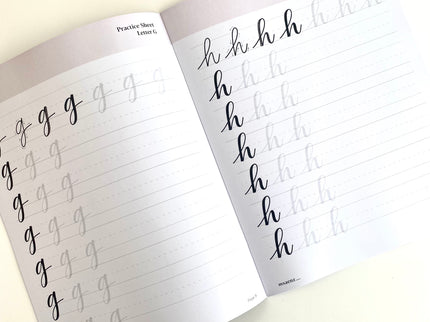 Practice Sheet
Letter G
g g g g g g
g g g
g g g
g g g
g g g
g g g
h h h h h h h
h h h
h h h
h h h
h h h
h h h
h h h